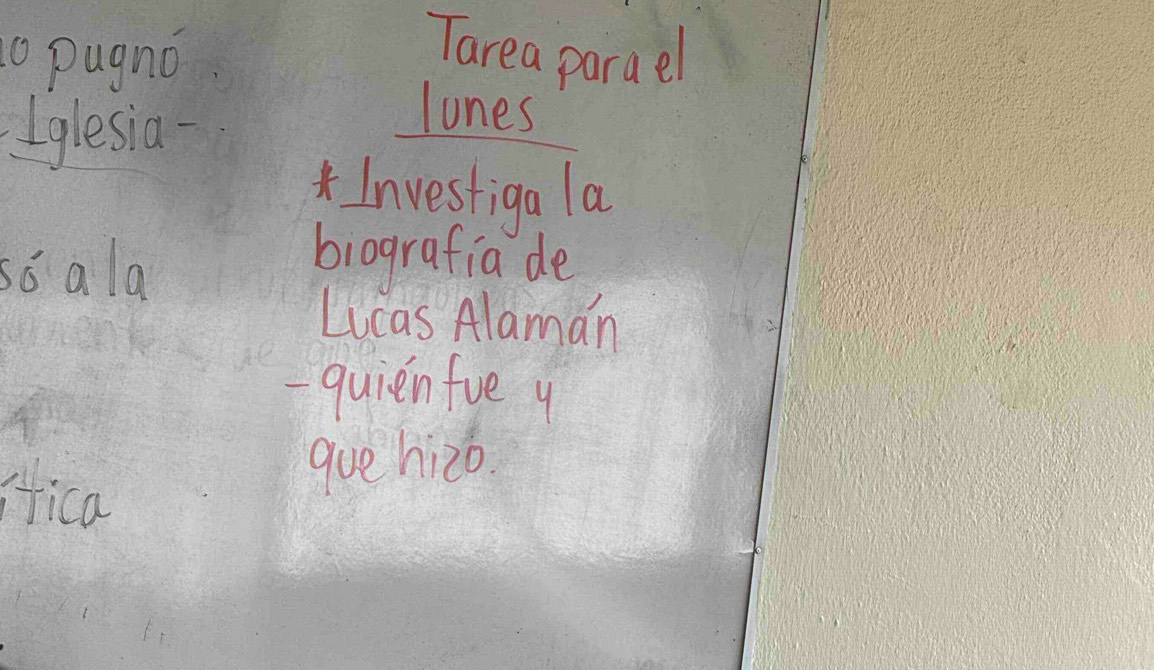 pugnó.
Iglesia-.
a la
Tarea para el
lunes
* Investiga la
biografía de
Lucas Alamán
- quién fue y
que hizo.